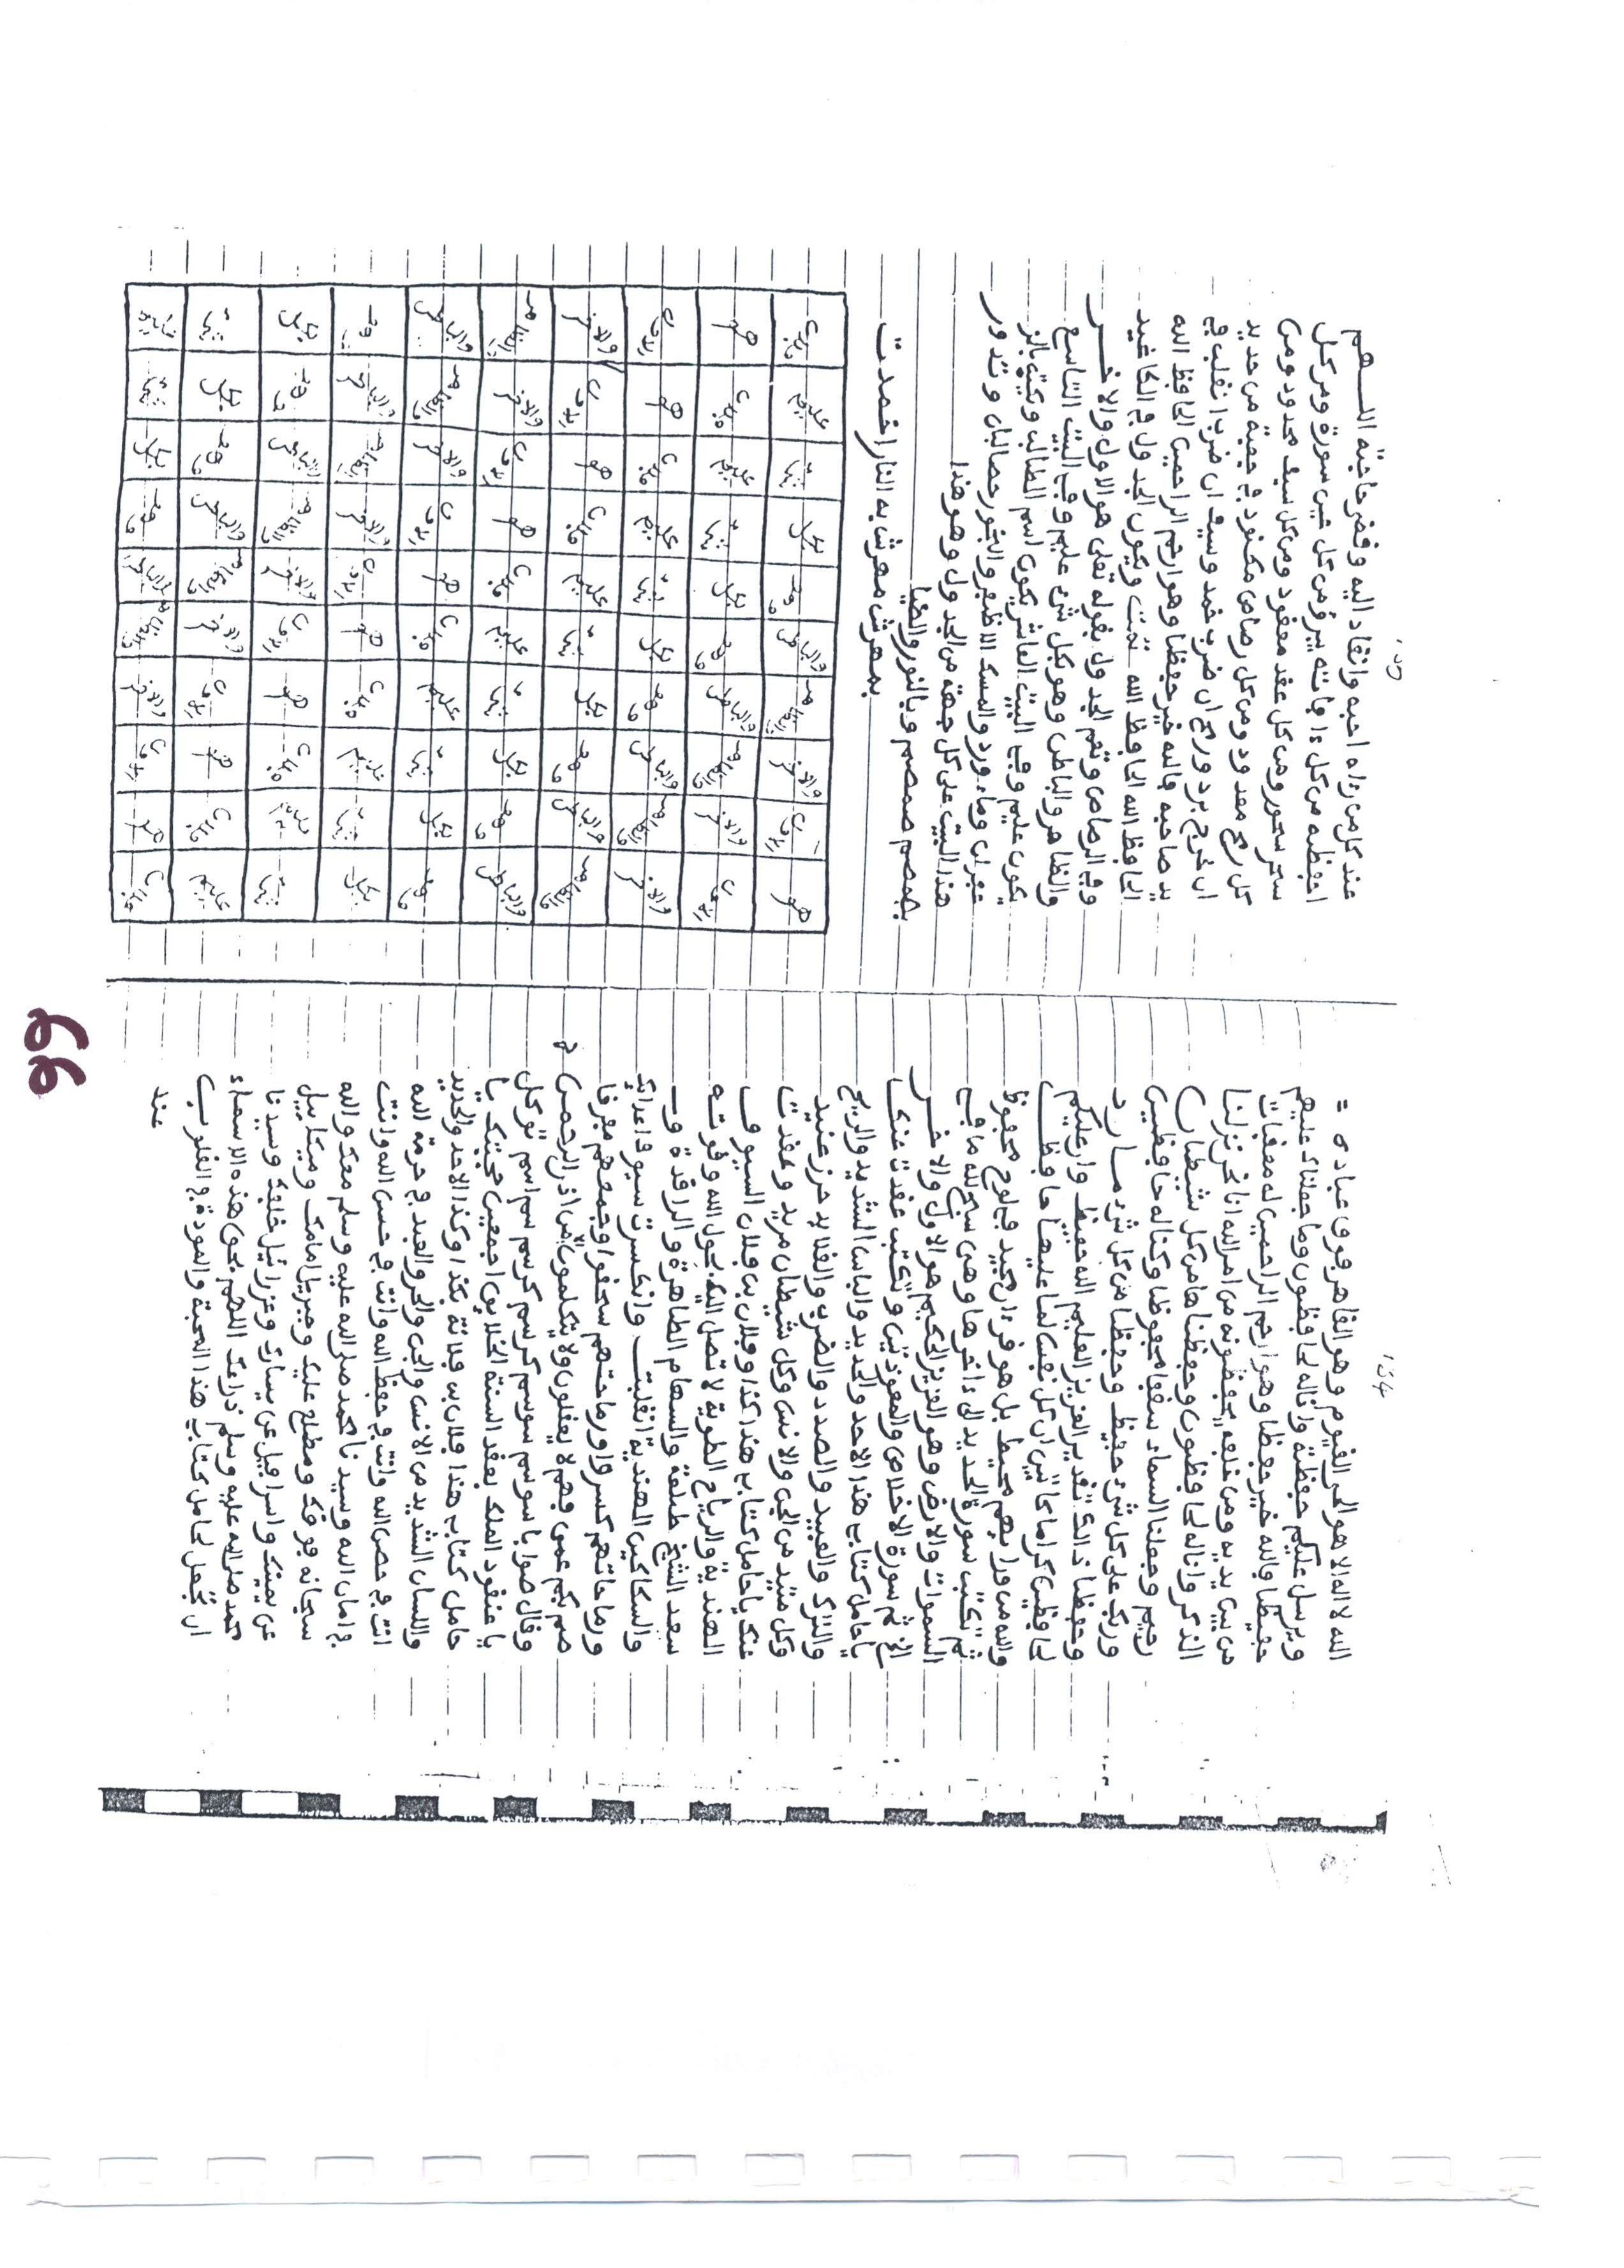 134
الله لا اله الا هو الحي القيوم وهو القاهر فوق عباده =
ويرسل عليكم حفظة وانا له لحافظون وما جعلناك عليهم
حفيظا فالله خير حفظا وهو ارحم الراحمين له معقبات
من بين يديه ومن خلفه يحفظونه من امر الله انا نحن نزلنا
الذكر وانا له لحافظون وحفظناها من كل شيطان
رجيم وجعلنا السماء سقفا محفوظا وكنا له حافظين
وربك على كل شيء حفيظ وحفظا من كل شيء مارد
وحفظا ذلك تقدير العزيز العليم الله حفيظ وان عليكم
لحافظين كراما كاتبين ان كل نفس لما عليها حافظ
والله من ورائهم محيط بل هو قرءان مجيد في لوح محفوظ
ثم تكتب سورة الحديد الى ءاخرها وهي سبح لله ما في
السموات والارض وهو العزيز الحكيم هو الاول والاخر
الخ ثم سورة الاخلاص والمعوذتين وتكتب عقدت عنك
يا حامل كتاب هذا الاحد والحديد والباس الشديد والريح
والترك والعبيد والصدد والضرب والقايد حرز عنيد
وكل مشد من الجن والانس وكل شيطان مريد وعقدت
عنك يا حامل كتاب هذا كذا وفلان بن فلان السيوف
الهندية والرياح الطوية لا تصل اليك بحول الله وقوته
سعد الشيخ خليفة والسهام الطاهرة والراقدة و
والسكاكين الهندية انقلبت وانكسرت سيوف اعدائك
ورماحاتهم كسروا ورماحتهم سحقوا وجمعهم مفرقا
صم بكم عمي فهم لا يعقلون ولا يتكلمون الا من اذن له الرحمن
وقال صوابا سوسم سوسم كرسم كرسم سم اسم توكل
يا عنقود الملك بعقد السنة الخلايق اجمعين محبتك يا
حامل كتاب هذا فلان بن فلانة بكذا وكذا الاحد والحديد
والسان الشديد من الانس والجن والحر والعبد في حرمة الله
انت في حصن الله وانت في حفظ الله وانت في حسن الله وانت
في امان الله وسيدنا محمد صلى الله عليه وسلم معك والله
سبحانه فوقك ومطلع عليك وجبريل امامك وميكاييل
عن يمينك واسرافيل عن يسارك وعزرائيل خلفك وسيدنا
محمد صلى الله عليه وسلم ذراعك اللهم بحق هذه الاسماء
ان تجعل لحامل كتاب هذا المحبة والمودة في القلوب
عند
135
عند كل من رءاه احبه وانقاد اليه وقضى حاجته اللهم
احفظه من كل ءافاته يبرق من كل شين سورة ومن كل
سحر سحور ومن كل عقد معقود ومن كل سيف محدود ومن
كل رمح معدود ومن كل رصاص مكنود في جعبته من حديد
ان خرج برد ورمح ان ضرب خمد وسيف ان ضرب انقلب في
يد صاحبه فالله خير حفظا وهو ارحم الراحمين الحافظ الله
الحافظ الله الحافظ الله تمت ويكون الجدول في الكاغيد
وفي الرصاص وتعم الجدول بقوله تعلى هو الاول والاخر
والظاهر والباطن وهو بكل شيء عليم وفي البيت التاسع
يكون عليم وفي البيت العاشر يكون اسم الطالب ويكتب بالز
عفران وماء ورد والمسك الاظفر والبخور حصالبان وتدور
هذا البيت على كل جهة من الجدول وهو هذا
بهصم صمصم وبالنور والضيا
بمهرش مهرش به النار اخمدت
هو الاول والاخر والظاهر والباطن وهو بكل شيء عليم فلان
الاول والاخر والظاهر والباطن وهو بكل شيء عليم فلان هو
والاخر والظاهر والباطن وهو بكل شيء عليم فلان هو الاول
والظاهر والباطن وهو بكل شيء عليم فلان هو الاول والاخر
والباطن وهو بكل شيء عليم فلان هو الاول والاخر والظاهر
وهو بكل شيء عليم فلان هو الاول والاخر والظاهر والباطن
بكل شيء عليم فلان هو الاول والاخر والظاهر والباطن وهو
شيء عليم فلان هو الاول والاخر والظاهر والباطن وهو بكل
عليم فلان هو الاول والاخر والظاهر والباطن وهو بكل شيء
فلان هو الاول والاخر والظاهر والباطن وهو بكل شيء
66